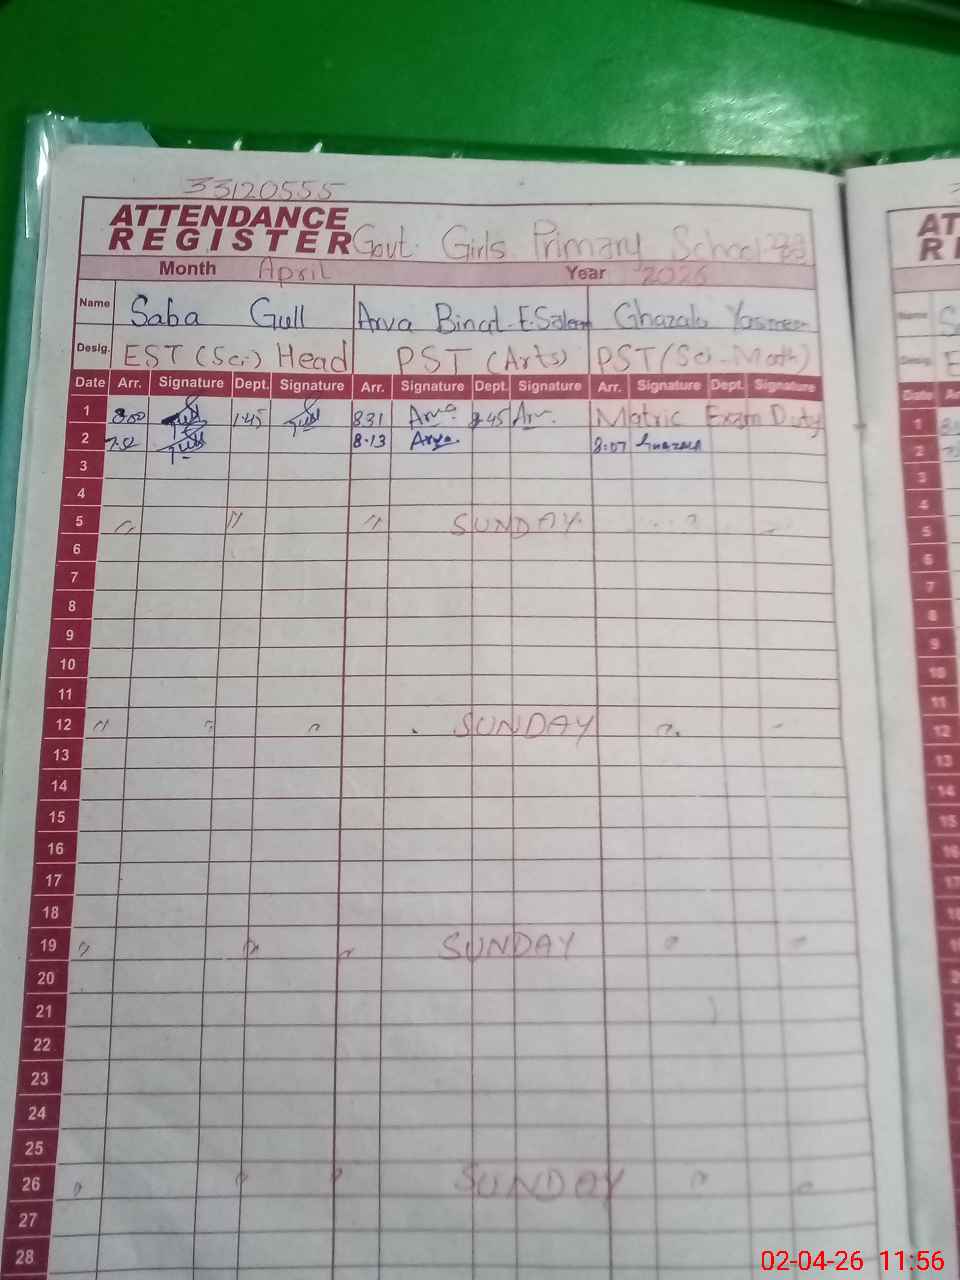 33120555
ATTENDANCE
REGISTER Govt. Girls Primary School
Month April Year 2026
Name Saba Gull Arva Binat-E-Salem Ghazala Yasmeen
Desig. EST (Sci) Head PST (Arts) PST (Sci-Math)
Date Arr. Signature Dept. Signature Arr. Signature Dept. Signature Arr. Signature Dept. Signature
1 8:00 1:45 831 Arva 45 Ar. Matric Exam Duty
2 8:13 Arva 8:07 Ghazala
3
4
5 " " " SUNDAY "
6
7
8
9
10
11
12 " " " SUNDAY "
13
14
15
16
17
18
19 " " " SUNDAY " "
20
21
22
23
24
25
26 " " " SUNDAY " "
27
28
AT
R
Name
Desig.
Date
1
2
3
4
5
6
7
8
9
10
11
12
13
14
15
16
17
02-04-26 11:56